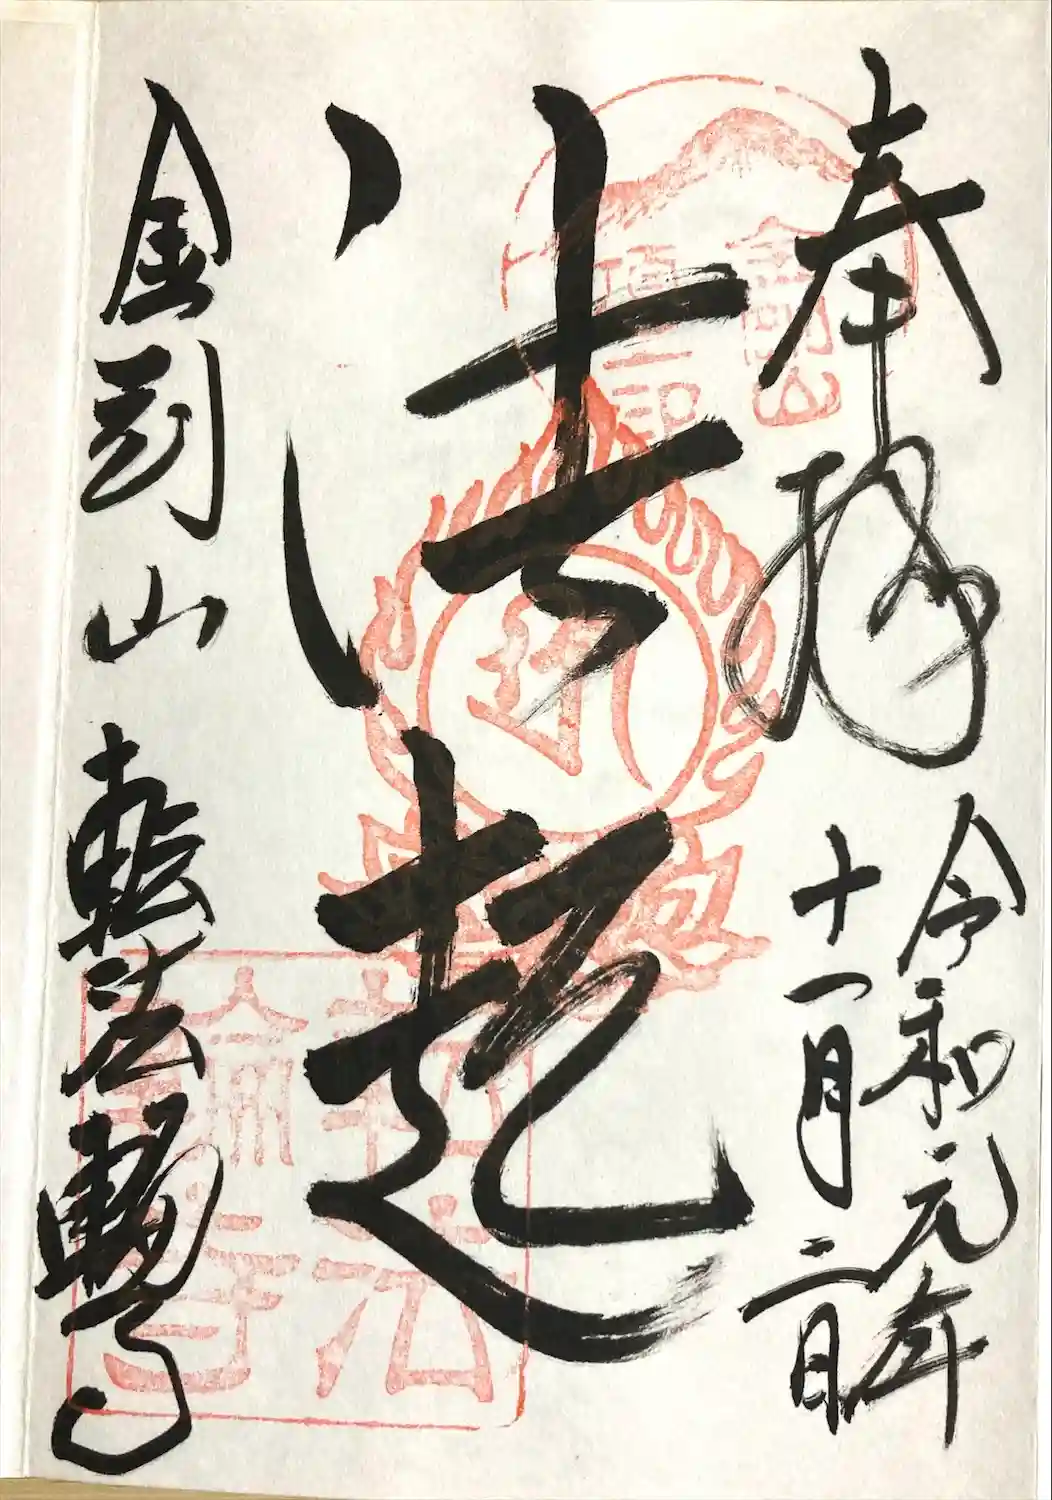 奉拝
令和元年
十一月二日
法起
金剛山
転法輪寺
金剛山
頂上印
転法
輪寺